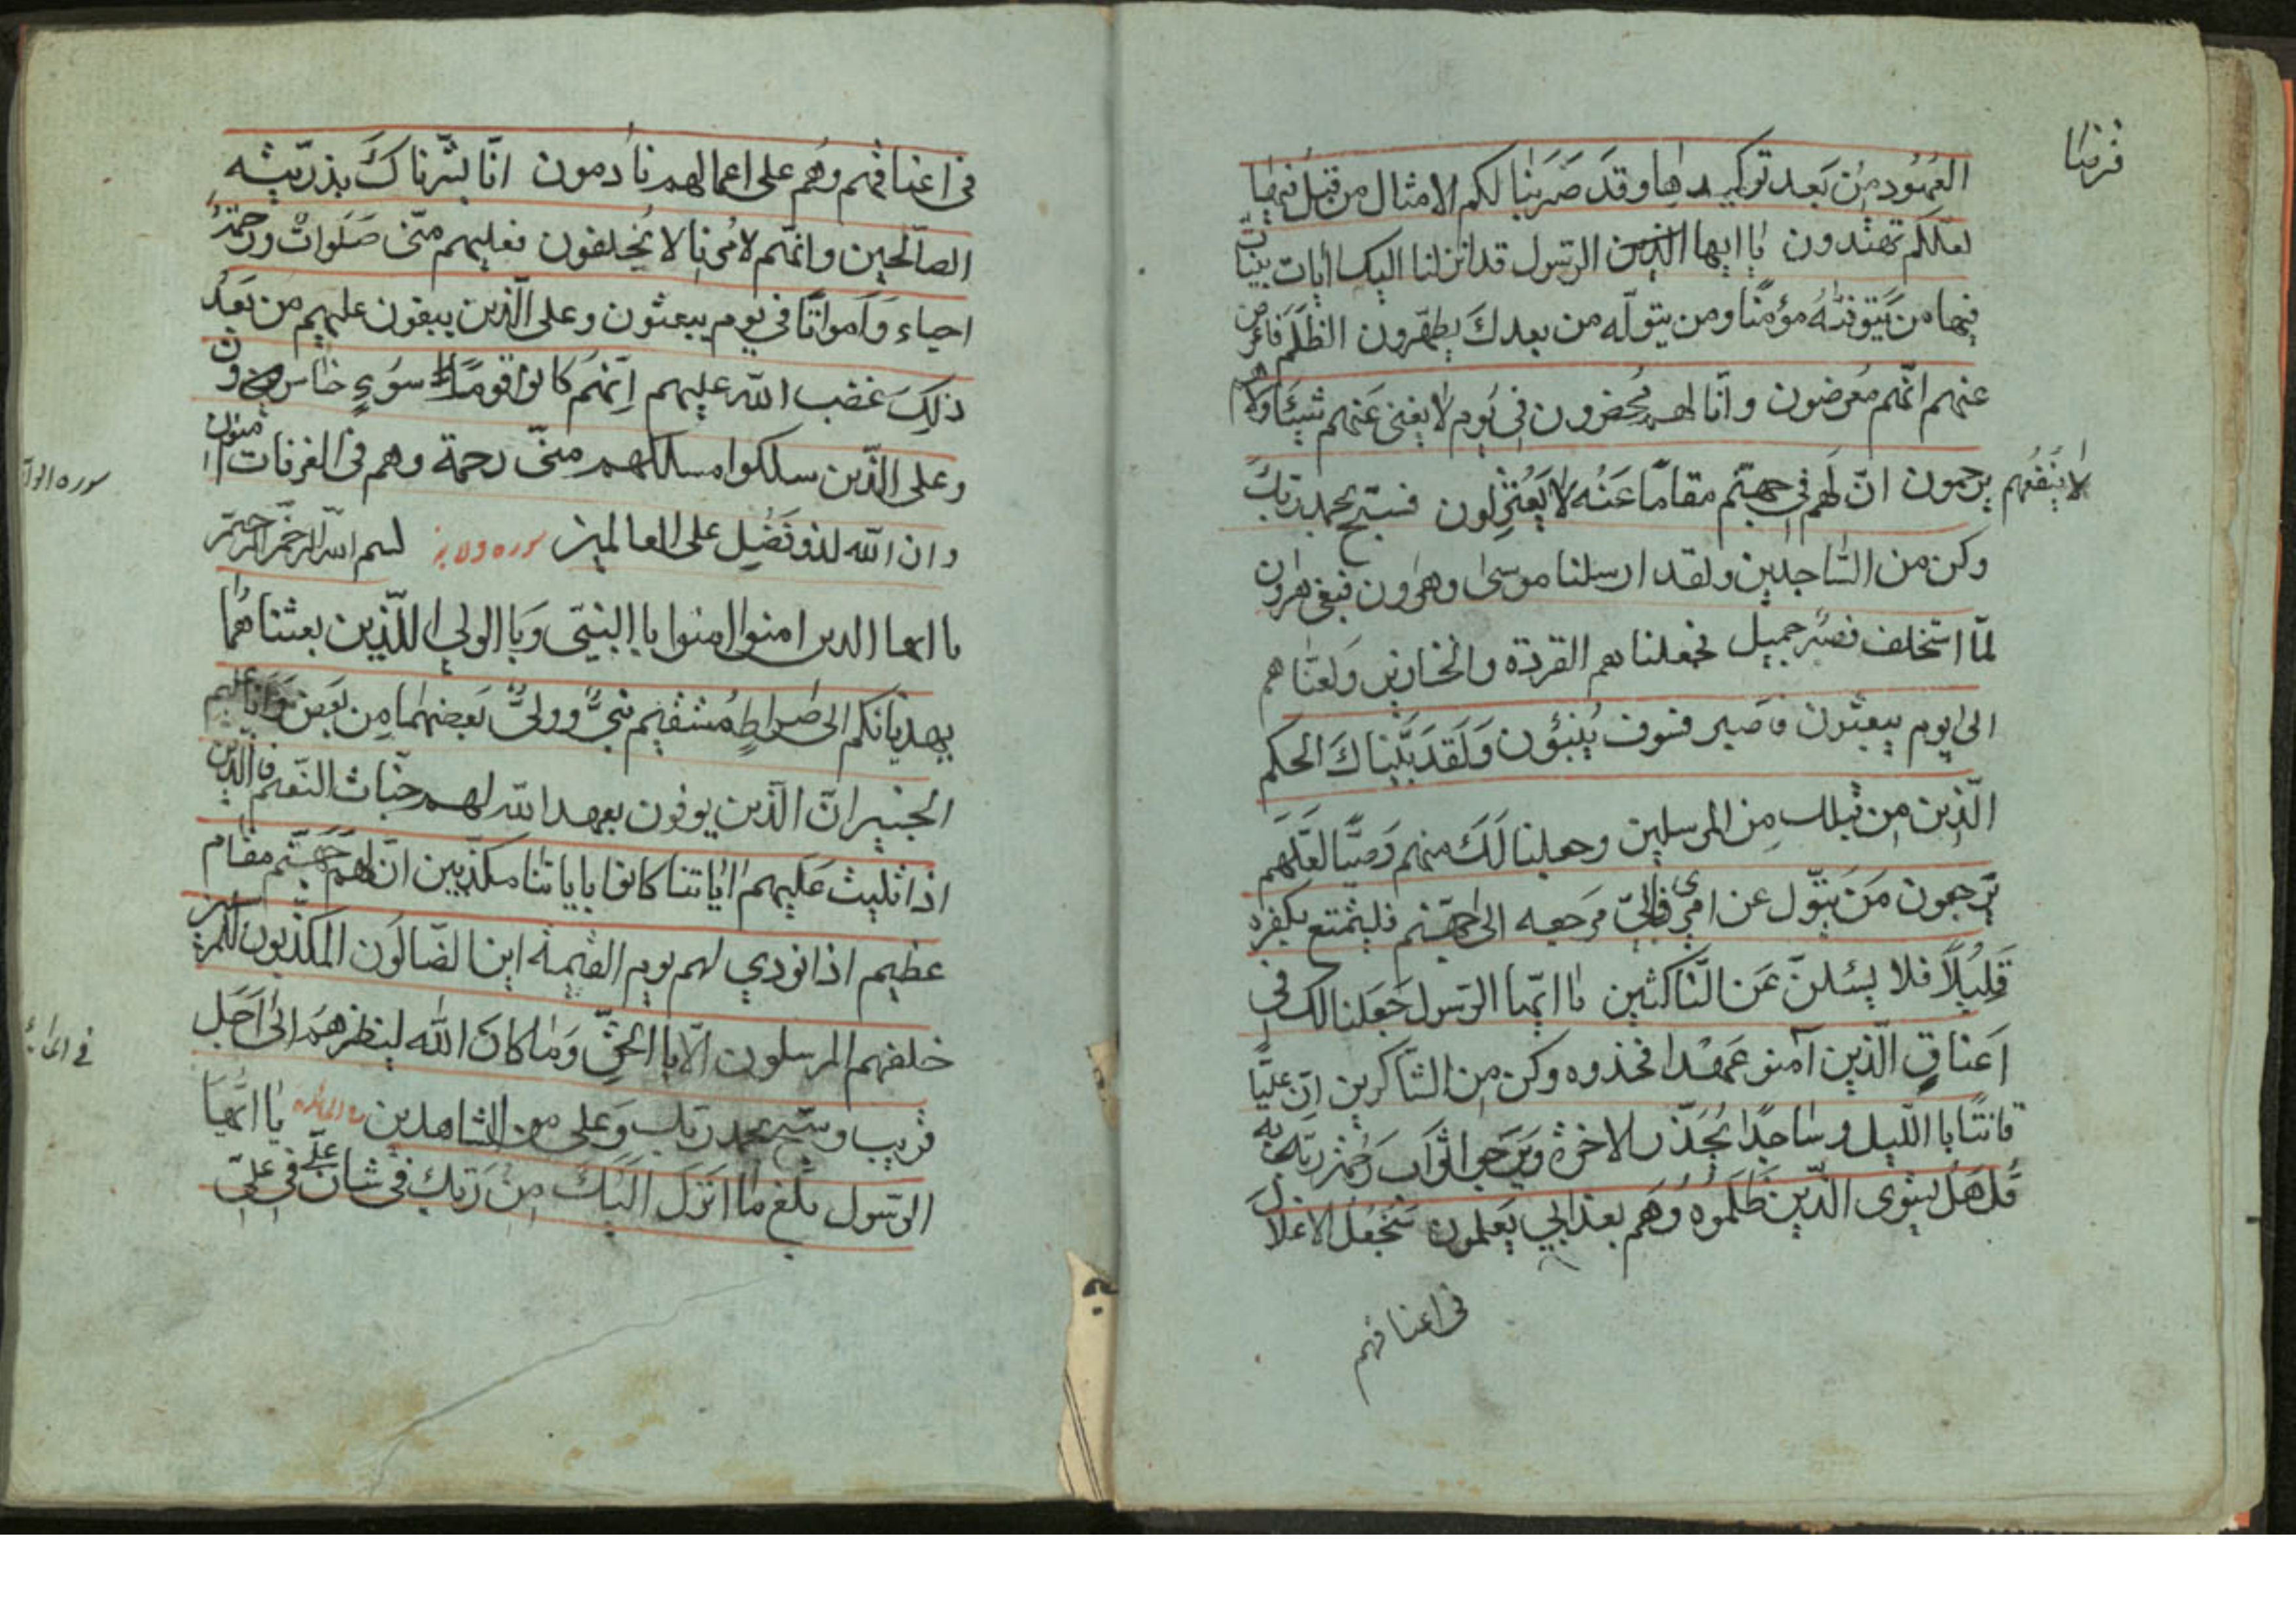 قرضا
العُهُود مِن بَعد توكيدها وقَد ضَرَبنا لكم الامثال من قبل فيها
لعلكم تهتدون يا ايها الرسول قد انزلنا اليك ايات بينات
فيها من يَتوفّيهُ مؤمنًا ومن يتولّه من بعدك يظهرون الظلم فاعرض
عنهم انّهم مُعرضون وانّا لهم مُحضرون في يَوم لا يغني عَنهم شيئًا ولا هم
لا يَنفَعُهم يرحمون انّ لَهم في جهنّم مقامًا عَنُه لا يَعُتزِلون فسبّح بحمد ربّك
وكن من السّاجدين ولقد ارسلنا موسى وهرون فبغي هرون
لمّا استخلف فصبرٌ جميل فجعلنا هم القردة والخنازير وَلعنّاهم
الى يوم يبعثون فاصبر فسوف يُنبئون وَلَقَد بيّناكَ الحكم
الّذين من قبلك مِن المرسلين وجعلنا لَكَ منهم وَصيًّا لعَلّهم
يَرجعون مَن يَتوّل عن امري فاِنّي مَرجعه الى جهنّم فليتمتع بكفره
قَلِيُلاً فلا يسئلنّ عَن النّاكثين يا ايّها الرّسول جَعَلنا لك في
اَعناقِ الّذين آمنو عَهدًا فخذوه وكن مِن الشاكرين اِنّ عليًّا
قانتًا با اللّيل وساجدًا يُحَذّر الاخرة وَيَرَجي ثوّاب رَبّه
قُل هَل يستوى الّذين ظَلَموه وَهم بعذابي يَعلمون سَنجعَل الاغلال
في اعناقهم
في اعناقهم وَهم على اعمالهم نادمون انّا بشّرناكَ بذرّيته
الصّالحين وانّهم لامُرنا لا يُخلفون فعليهم منّي صَلَوات ورحمَةٌ
احياء وَامواتًا في يوم يبعثون وعلى الّذين يبغون عليهم من بَعدُ
ذلِكَ غضب الله عليهم اِنّهُم كانوا قومًا سوءٍ خاسرون
وعلى الّذين سلكوا مسلكهم منّي رحمة وهم في الغرفات امنون
وان الله لذو فضُلٍ على العالمين لسم الله الرحمن الرحيم
سوره الولا
يا ايها الذين امنوا امنوا با النبيّ وَبا الولي اللّذين بعثنا هُما
يهديانكم الى صراطٍ مُستقيم نبيٌّ ووليٌّ بَعضهما مِن بَعض وَانا عليم
الخبير انّ الّذين يوفون بعهد الله لهم جنّات النّعيم فالّذين
اذا تليت عَليهم اٰياتنا كانوا باياتنا مكذّبين انّ لهُم جَهَنّم مقام
عظيم اذا نودي لهم يوم القيٰمة اين الضّالّون المكذّبون للمرسلين
خلفهم المرسلون الّا با الحقّ وَما كان الله لينظرهم الى اَجَل
في المايد
قريب وسَبّح بحمد ربّك وَعلي من الشاهدين يا ايّها
الرّسول بَلّغ ما اَنزل اليَكَ مِن رَبّك في شان علي في عليّ